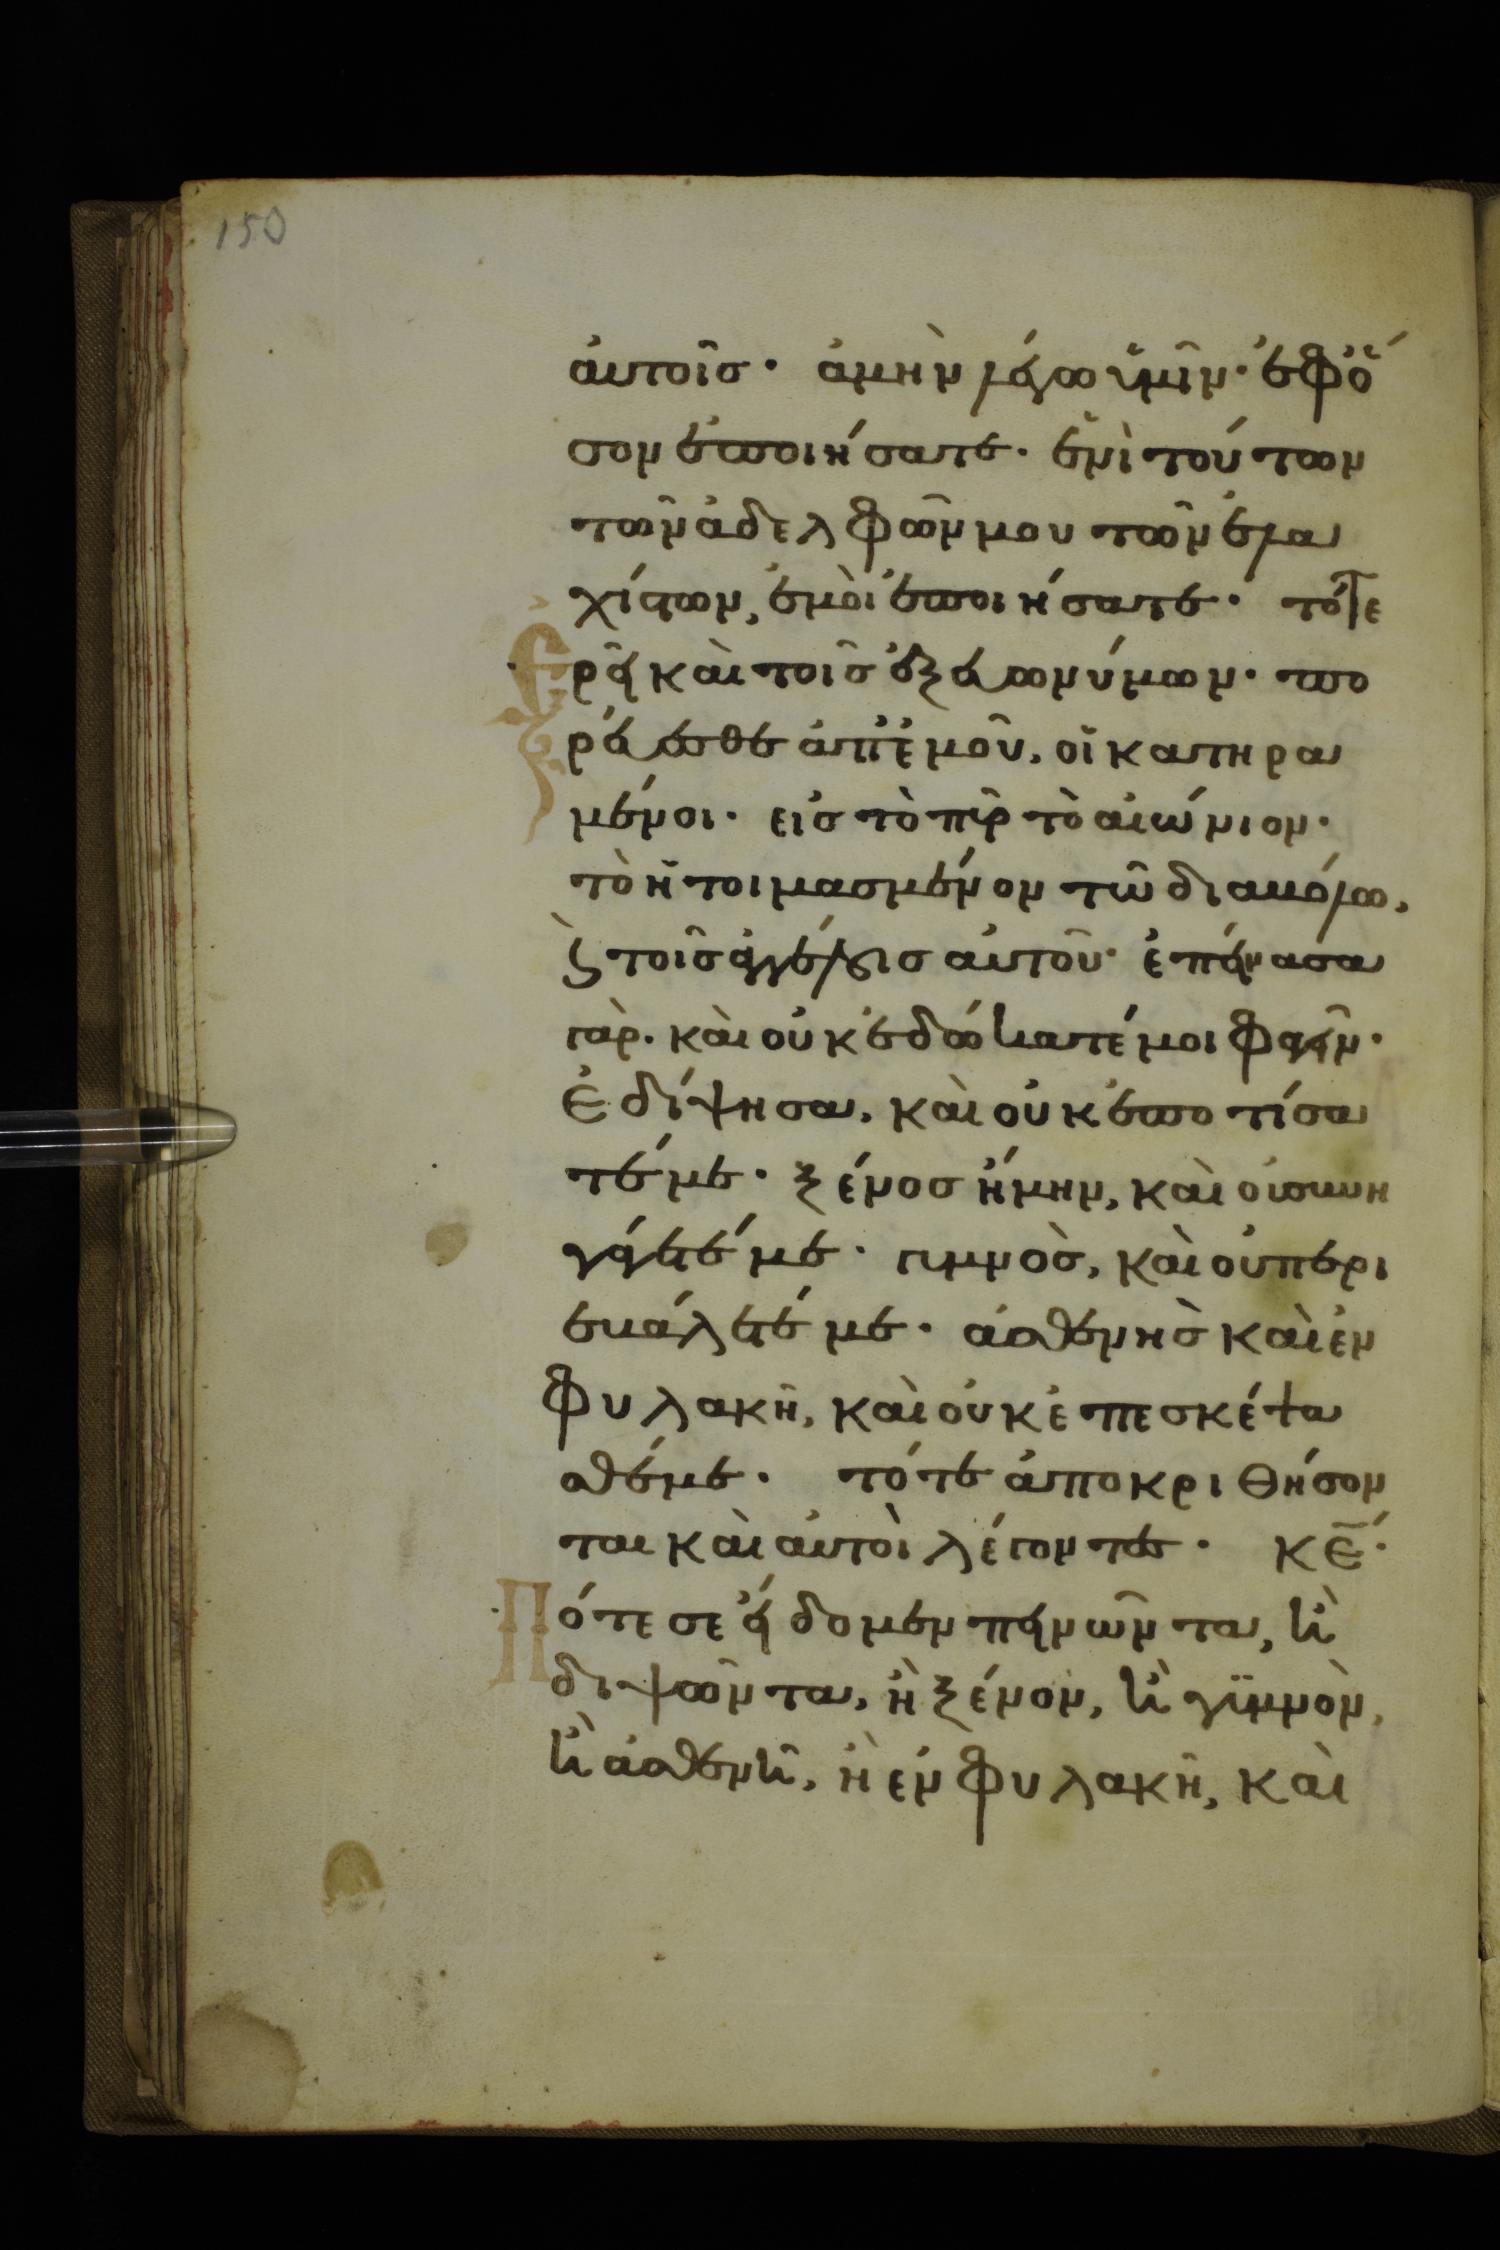 150
ἀυτοῖσ· ἀμὴν λέγω ὑμῖν· ἐφ ὅ
σον ἐποιήσατε· ἑνὶ τούτων
τῶν ἀδελφῶν μου τῶν ἐλα
χίστων, ἐμοὶ ἐποιήσατε· τότε
Ἐρεῖ καὶ τοῖσ ἐξ ἐυωνύμων· πο
ρέυεσθε ἀπ ἐμοῦ, οἱ κατηρα
μένοι· εἰσ τὸ πῦρ τὸ αἰώνιον·
τὸ ἡτοιμασμένον τῶ διαβόλω,
ϛ τοῖσ ἀγγέλοισ ἀυτοῦ· ἐπείνασα
γὰρ. καὶ οὐκ ἐδώκατέ μοι φαγεῖν·
Ἐδίψησα, καὶ οὐκ ἐποτίσα
τέ με· ξένοσ ἤμην, καὶ οὐ συνη
γάγετέ με· γυμνὸσ, καὶ οὐ περι
εβάλετέ με· ἀσθενὴσ καὶ ἐν
φυλακῆ, καὶ οὐκ ἐπεσκέψα
σθέ με· τότε ἀποκριθήσον
ται καὶ ἀυτοὶ λέγοντεσ· κ̅ε̅·
Πότε σε εἴδομεν πεινῶντα, ἢ
διψῶντα, ἢ ξένον, ἢ γυμνὸν,
ἢ ἀσθενῆ, ἢ ἐν φυλακῆ, καὶ